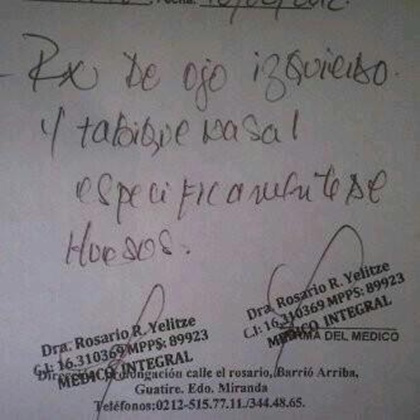 Fecha: 10/02/2012.
- Rx De ojo izquierdo.
y tabique nasal
especificamente de
Huesos.
Dra. Rosario R. Yelitze
C.I: 16.310369 MPPS: 89923
MEDICO INTEGRAL
Dra. Rosario R. Yelitze
C.I: 16.310369 MPPS: 89923
MEDICO INTEGRAL
FIRMA DEL MEDICO
Dirección: prolongación calle el rosario, Barrió Arriba,
Guatire. Edo. Miranda
Teléfonos:0212-515.77.11./344.48.65.